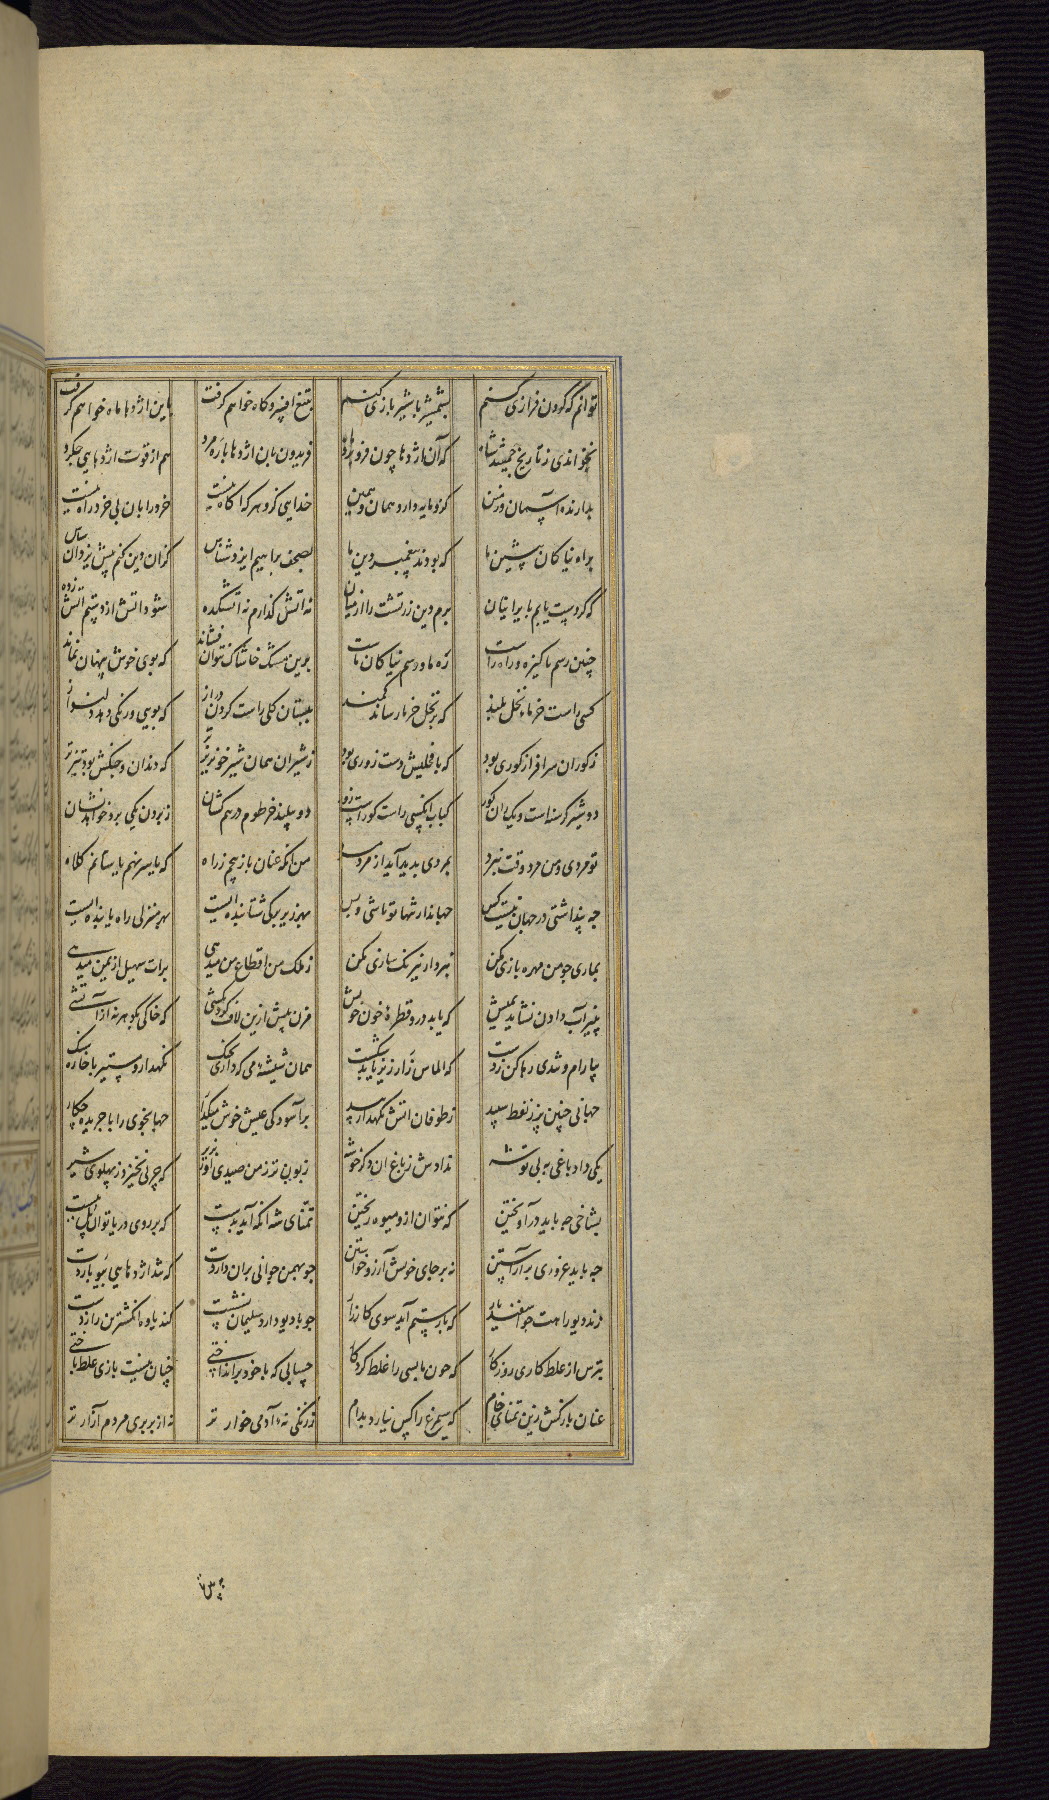 توانم که گردون فرازی کنم بشمشیر با شیر بازی کنم بتیغ افسر و گاه خواهم گرفت باین اژدها ماه خواهم گرفت
نخواندی ز تاریخ جمشید شاه که آن اژدها چون فرو برد ماه فریدون بان اژدها باره مرد هم از قوت اژدهایی چه کرد
بدارنده آسمان و زمین کزو مایه دارد همان و همین خدایی کزو هر که آگاه نیست خرد را بان بی خرد راه نیست
براه نیاکان پیشین ما که بودند پیغمبر دین ما بصحف براهیم ایزدشناس کزان دین کنم پیش یزدان سپاس
که گر دست یابم بایرانیان برم دین زرتشت را از میان نه آتش گذارم نه آتشکده شود آتش از دستم آتش زده
چنین رسم پاکیزه و راه راست ره ما و رسم نیاکان ماست برین مشک خاشاک نتوان فشاند که بوی خوش پنهان نماند
کسی راست خرما ز نخل بلند که بر نخل خرما رساند کمند ببستان کلی راست کردن دراز که بویی و رنگی دهد دلنواز
ز گوران سرافراز گوری بود که با فحلیش دست زوری بود ز شیران همان شیر خونریزتر که دندان و چنگش بود تیزتر
دو شیر گرسنه است و یک ران گور کباب آنکسی راست کوراست زور دو پیلند خرطوم درهم کشان ز بردن یکی برد خواهد نشان
تو مردی و من مرد وقت نبرد بمردی پدید آید از مرد مرد من آنکه عنان باز پیچم ز راه که یا سر نهم یا ستانم کلاه
چه پنداشتی در جهان نیست کس جهاندار تنها تو باشی و بس بهر زیر برگی شتابنده ایست بهر منزلی راه یابنده ایست
بماری چو من مهره بازی مکن نبرد آر نیرنگ سازی مکن ز ملک من اقطاع من میدهی برات سهیل از یمن میدهی
که یابد درو قطره خون خویش مزن پیش ازین لاف گردنکشی که خاکی بگوهر نه از آتشی
بیارام و تندی رها کن ز دست که الماس از ارزیز یابد شکست همان شیشه می که داری بچنگ نگهدار و مستیز با خاره سنگ
جهانی چنین پر ز نفط سپید ز طوفان آتش نگهدار بید برآسودگی عیش خوش میگذار جهانجوی را با جریده چکار
یکی داد باغی به بی توشه ندادش ز باغ آن دگر خوشه زبون تر ز من صیدی آور بزیر که چربی نخیزد ز پهلوی شیر
بشاخی چه باید درآویختن که نتوان ازو میوه ریختن تمنای شه آنکه آید بدست که بر روی دریا توان پل ببست
چه باید غروری برآراستن نه بر جای خویش آرزو خواستن چو بهمن جوانی بران داردت که تند اژدهایی بیوباردت
زند دیو راهت چو اسفندیار که با رستم آید سوی کارزار چو با دیو دارد سلیمان نشست کند یاوه انگشترین را ز دست
بترس از غلط کاری روزگار که چون ما بسی را غلط کرد کار حسابی که با خود برانداختی چنان نیست بازی غلط باختی
عنان بازکش زین تمنای خام که سیمرغ را کس نیارد بدام ز زنگی نه آدمی خوارتر نه از بربری مردم آزارتر